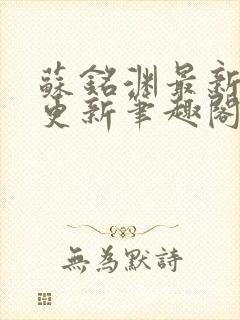 蘇銘淵最新
更新筆趣閣
無為默詩